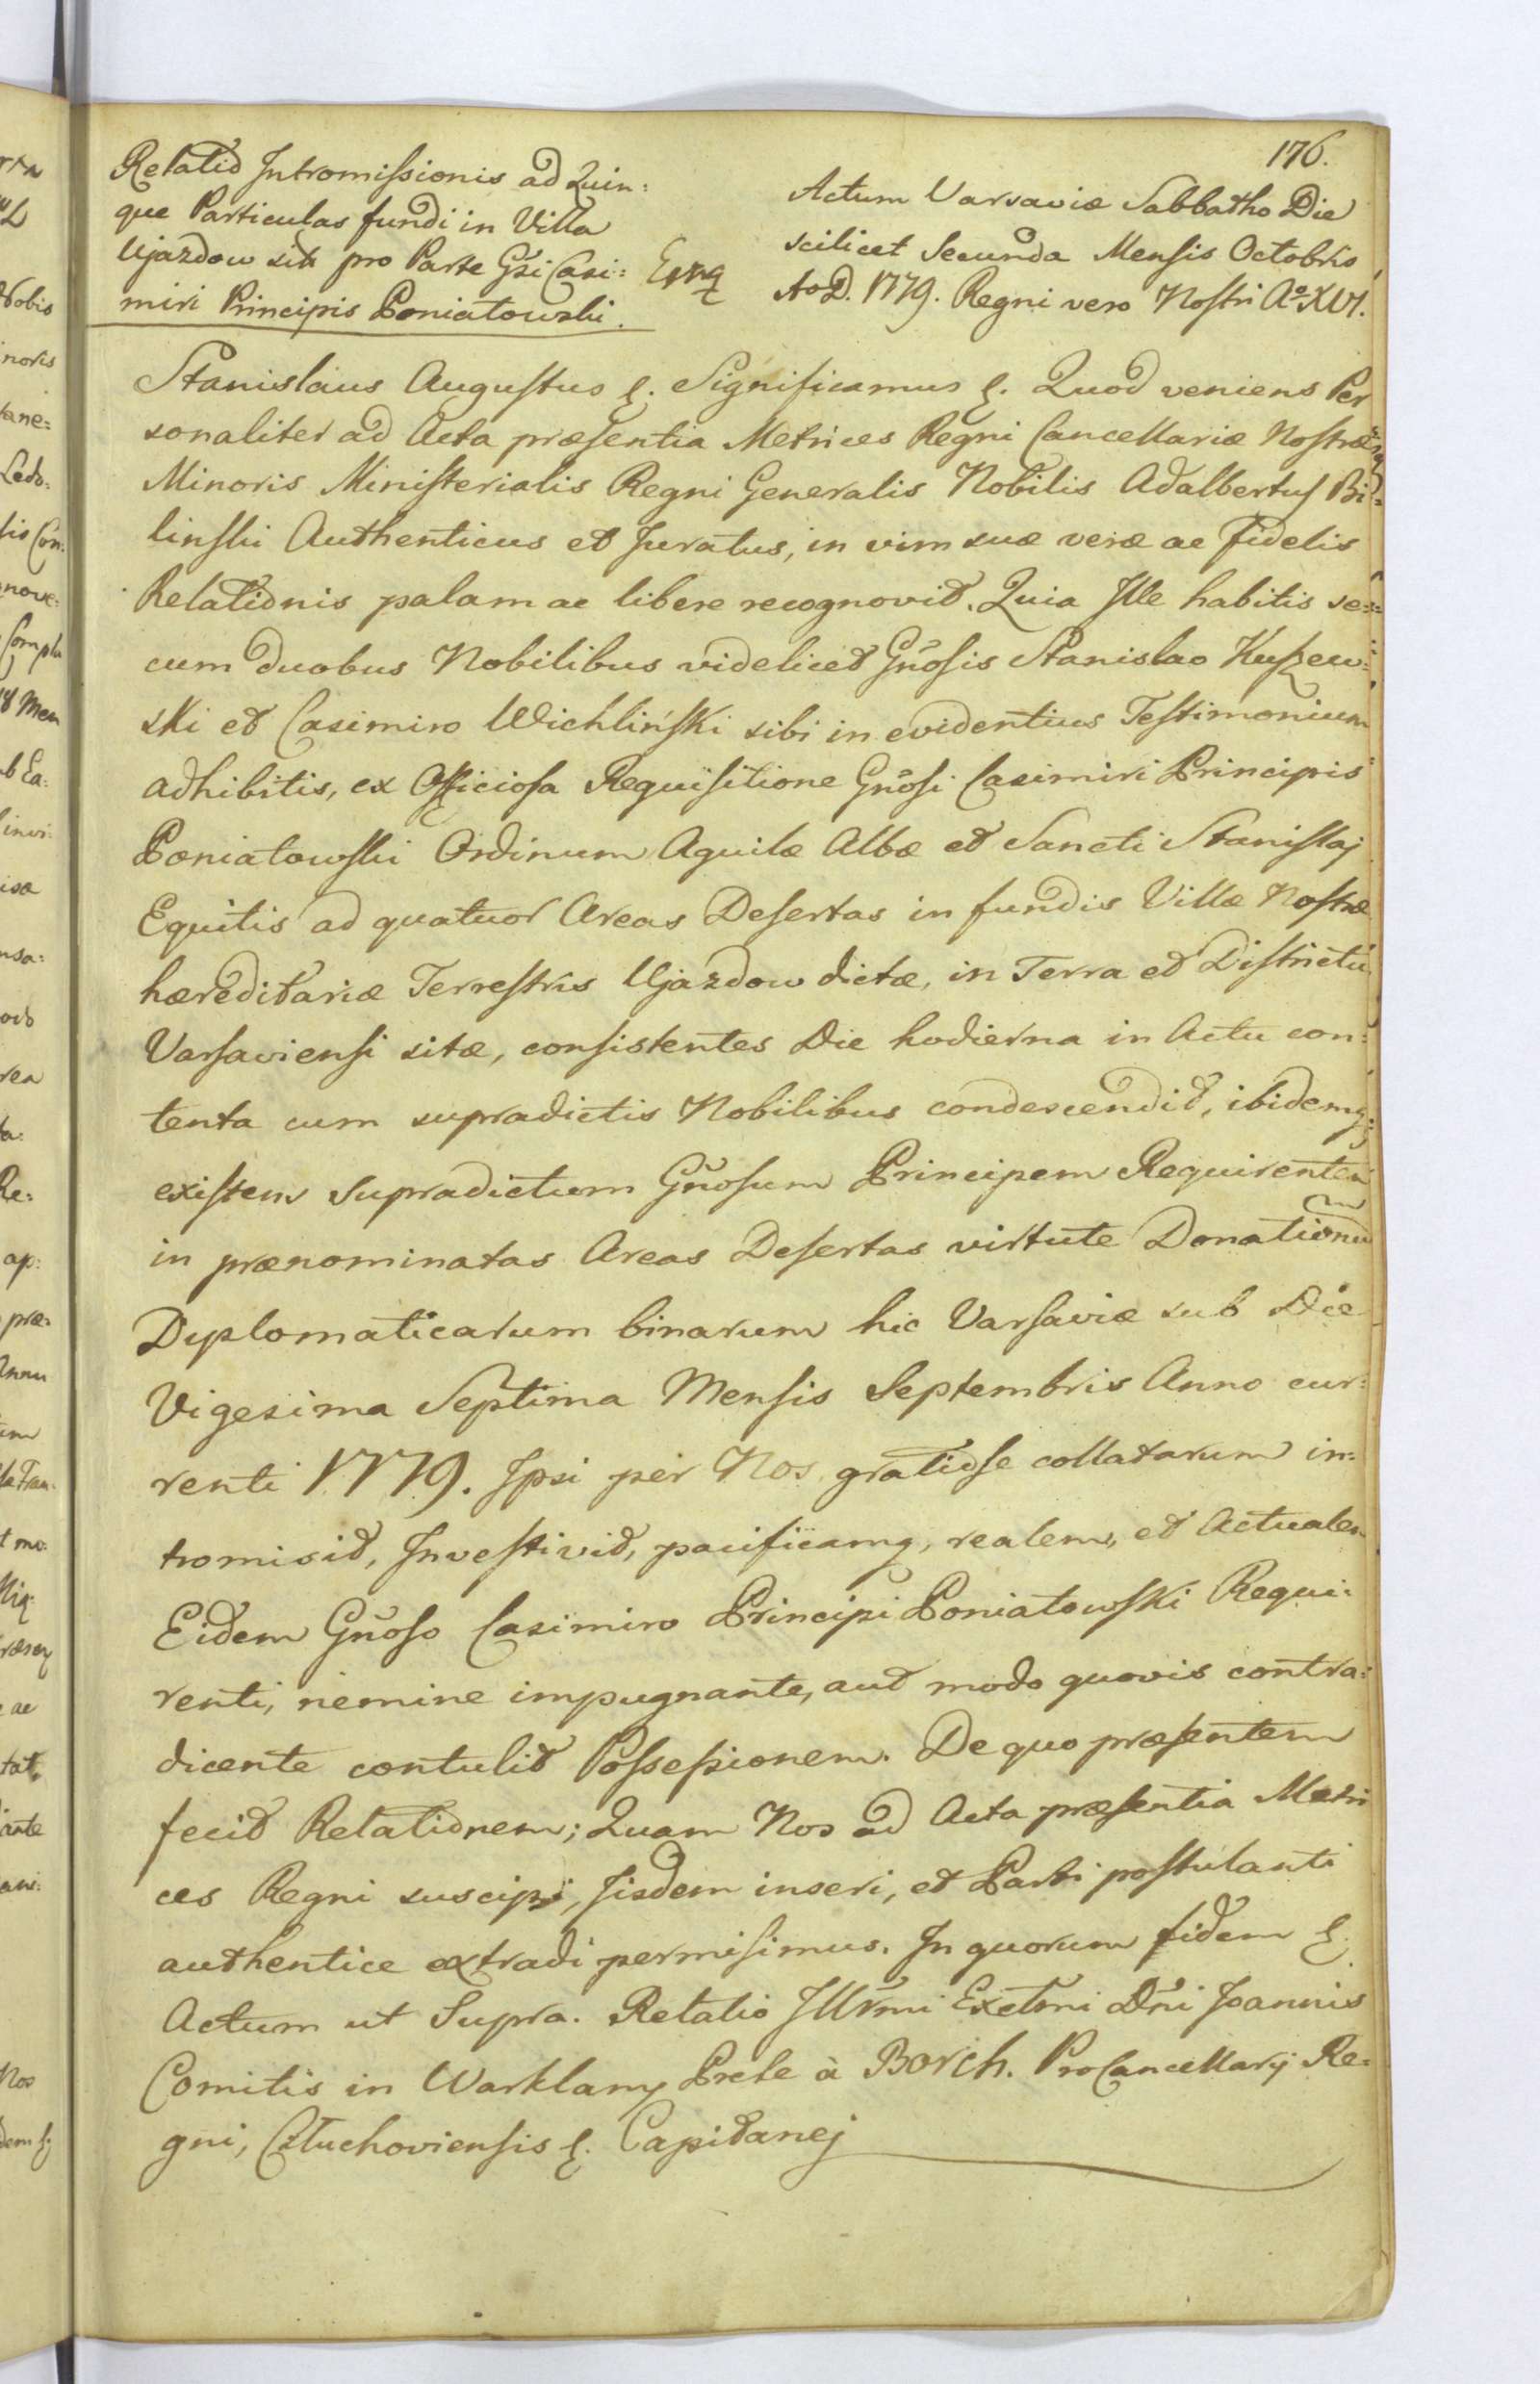 176.
Relatio Intromissionis ad Quin:
que Particulas fundi in Villa
Ujazdow sit pro Parte Gsi Casi:
miri Principis Poniatowski.
Actum Varsaviæ Sabbatho Die
scilicet Secunda Mensis Octobris
AoD. 1779. Regni vero Nostri Aº XVI.
Stanislaus Augustus &. Significamus &. Quod veniens Per
sonaliter ad Acta præsentia Metrices Regni Cancellariæ Nostræ
Minoris Ministerialis Regni Generalis Nobilis Adalbertus Bi=
linski Authenticus et Juratus, in vim suæ veræ ac fidelis
Relationis palam ac libere recognovit. Quia Ille habitis se=
cum duobus Nobilibus videlicet Gnosis Stanislao Kuszew:
ski et Casimiro Wichliński sibi in evidentius Testimonium
adhibitis, ex Officiosa Requisitione Gnosi Casimiri Principis
Poniatowski Ordinum Aquilæ Albæ et Sancti Stanislaj
Equitis ad quatuor Areas Desertas in fundis Villæ Nostræ
hæreditariæ Terrestris Ujazdow dictæ, in Terra et Districtu
Varsaviensi sitæ, consistentes Die hodierna in Actu con:
tenta cum supradictis Nobilibus condescendit, ibidemq;
existens supradictum Gnosum Principem Requirentem
in prænominatas Areas Desertas virtute Donationu
Diplomaticarum binarum hic Varsaviæ sub Die
Vigesima Septima Mensis Septembris Anno cur:
renti 1779. Ipsi per Nos gratiose collatarum in:
tromisit, Investivit, pacificamq, realem, et Actualem
Eidem Gnoso Casimiro Principi Poniatowski Requi:
renti, nemine impugnante, aut modo quovis contra:
dicente contulit Possessionem. De quo præsentem
fecit Relationem; Quam Nos ad Acta præsentia Metri
ces Regni suscipi, Iisdem inseri, et Parti postulanti
authentice extradi permisimus. In quorum fidem &.
Actum ut Supra. Relatio Illrmi Exctmi Dni Joannis
Comitis in Warklany Prele à Borch. ProCancellarij Re=
gni, Człuchoviensis &. Capitanej